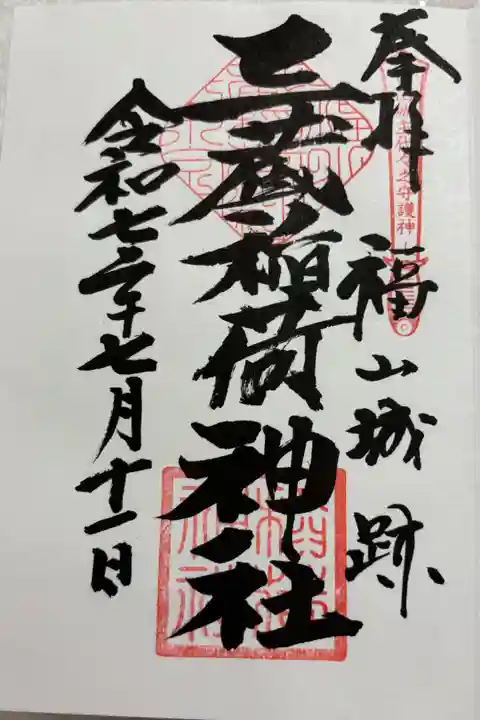 奉拝
之守護神
福山城跡
三蔵稲荷神社
令和七年七月十一日